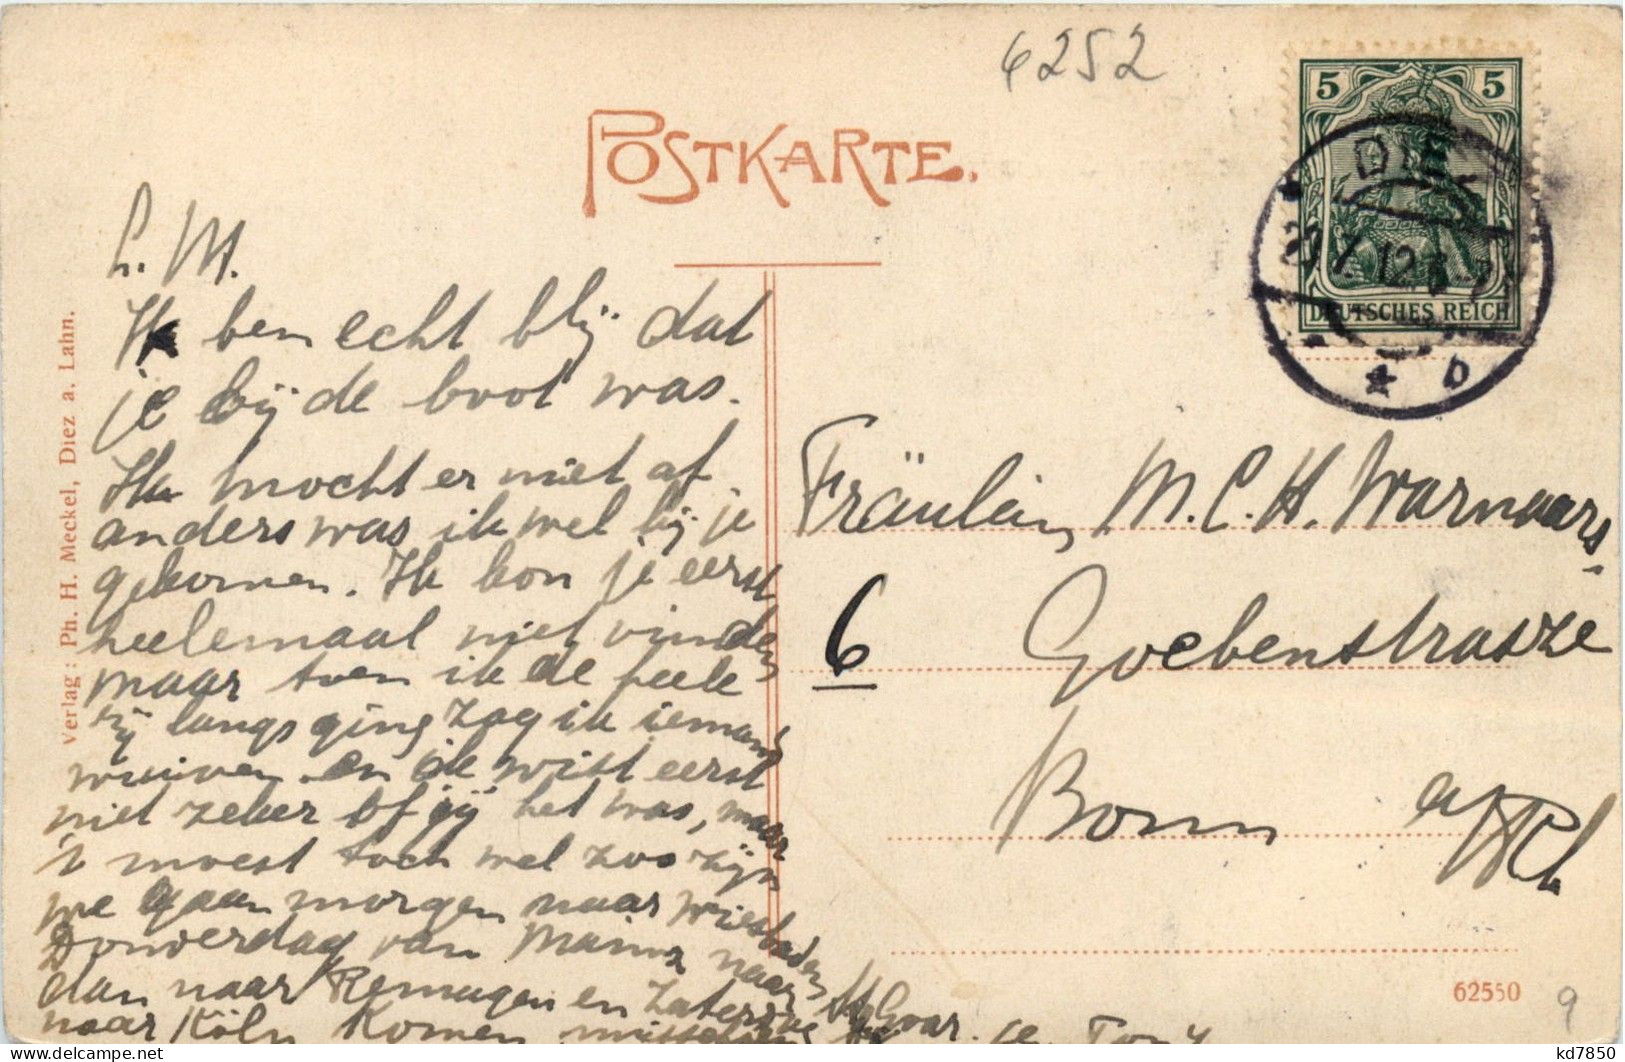 6252
POSTKARTE.
5 5
DIEZ
DEUTSCHES REICH
* b
L. M.
Ik ben echt blij dat
je bij de boot was.
Ik mocht er niet af
anders was ik wel bij je
gekomen. Ik kon je eerst
heelemaal niet vinden
maar toen ik de heele
rij langs ging zag ik iemand
wuiven en ik wist eerst
niet zeker of jij het was, maar
't moest toch wel zoo zijn
we gaan morgen naar Wiesbaden
Donderdag van Mainz naar
dan naar Remagen en Zaterdag
naar Köln Komen
Fräulein M. C. H. Warnaars
6 Goebenstrasze
Bonn a/Rh
Verlag: Ph. H. Meckel, Diez a. Lahn.
62550
9
kd7850